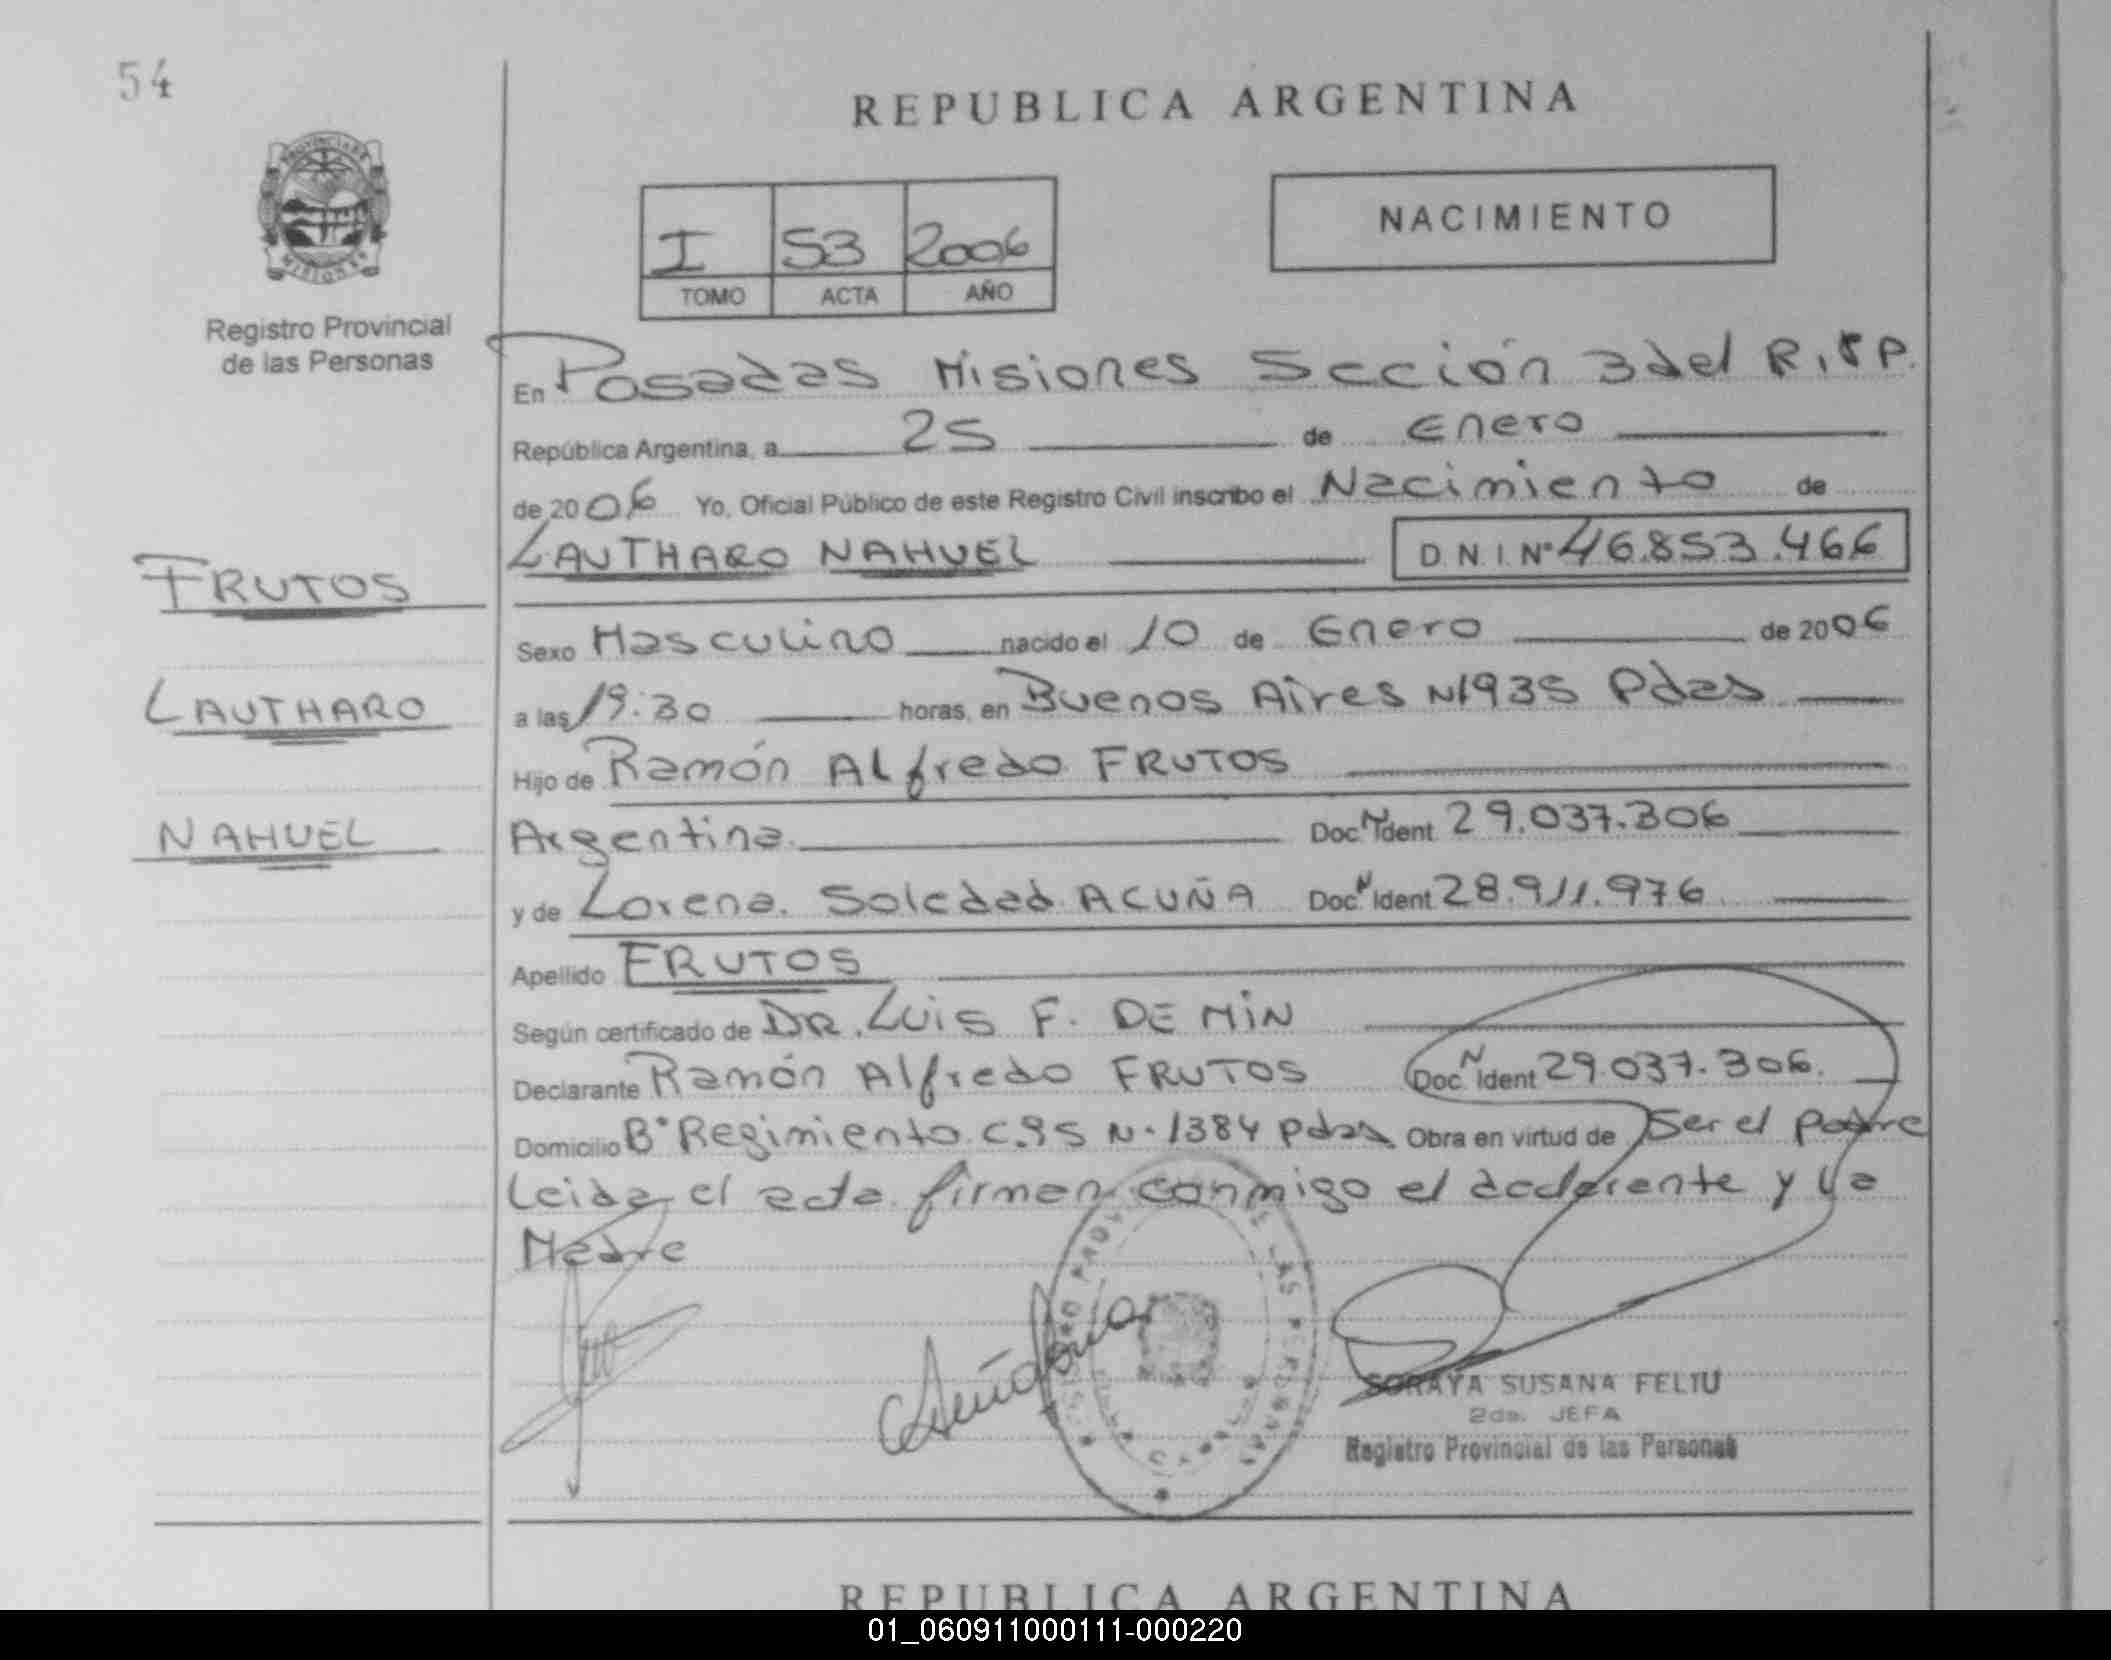 54
REPUBLICA ARGENTINA
PROVINCIA DE
MISIONES
Registro Provincial
de las Personas
I 53 2006
TOMO ACTA AÑO
NACIMIENTO
En Posadas Misiones Sección 3 del R.P.
República Argentina, a 25 de Enero
de 2006 Yo, Oficial Público de este Registro Civil inscribo el Nacimiento de
LAUTHARO NAHUEL D.N.I. Nº 46.853.466
FRUTOS
LAUTHARO
NAHUEL
Sexo Masculino nacido el 10 de Enero de 2006
a las 19:30 horas, en Buenos Aires N1935 Pdas
Hijo de Ramón Alfredo FRUTOS
Argentina. Doc. N Ident 29.037.306
y de Lorena. Soledad ACUÑA Doc. N Ident 28.911.976
Apellido FRUTOS
Según certificado de DR. Luis F. DE MIN
Declarante Ramón Alfredo FRUTOS Doc. N Ident 29.037.306.
Domicilio Bº Regimiento C.95 N. 1384 Pdas Obra en virtud de Ser el padre
Leida el acta firman conmigo el declarente y la
Madre
SORAYA SUSANA FELIU
2da. JEFA
Registro Provincial de las Personas
REPUBLICA ARGENTINA
01_060911000111-000220